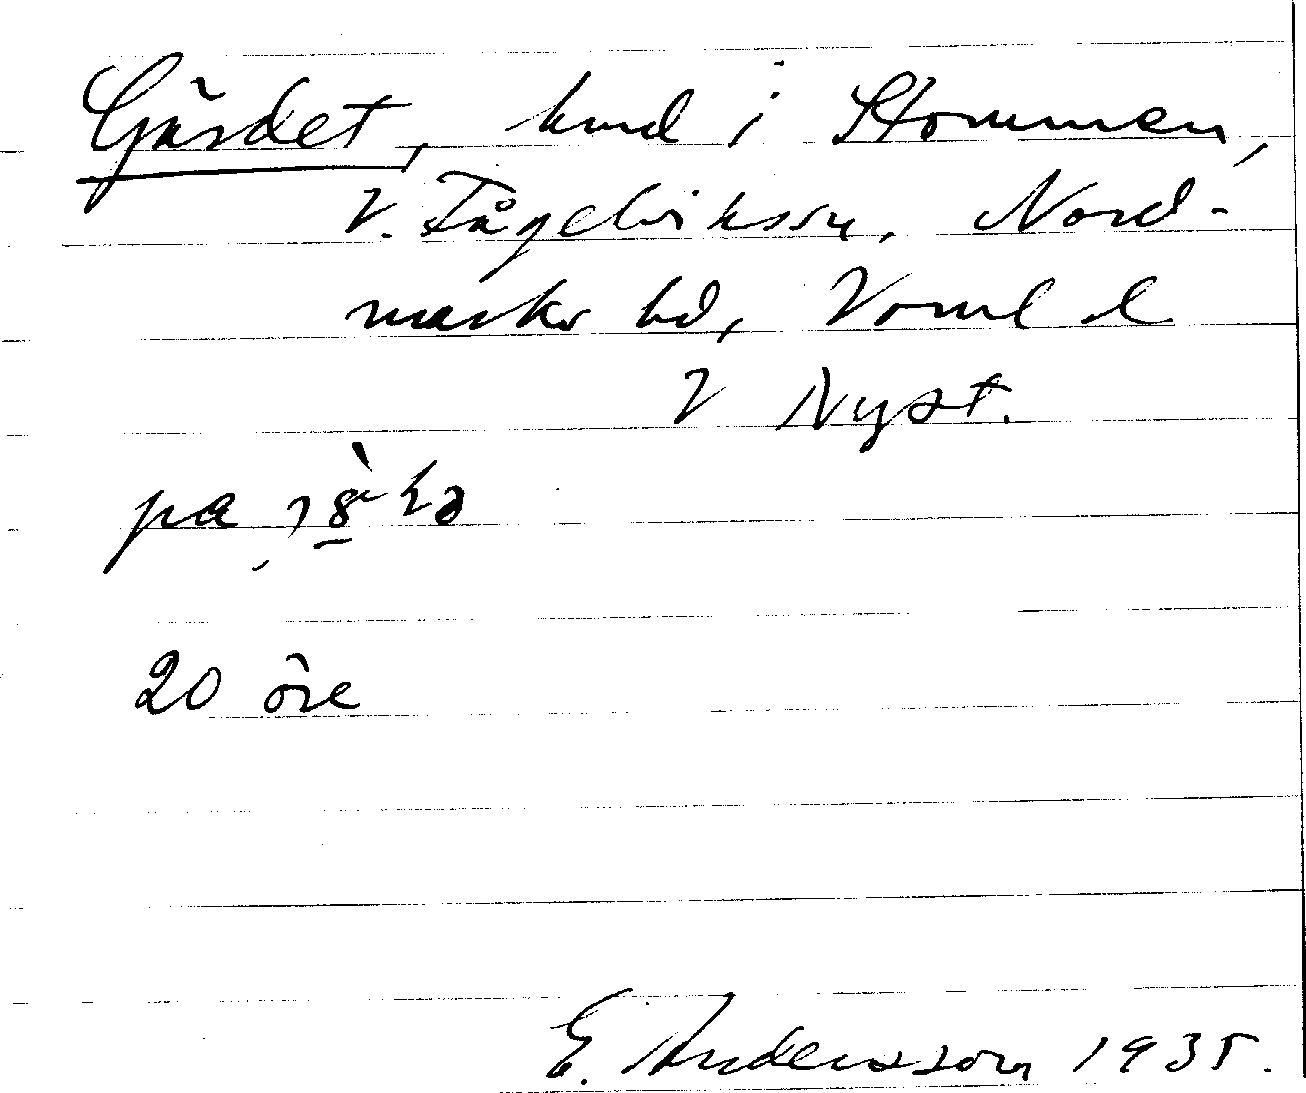 Gärdet, hmd i Stommen,
V. Fågelvikssn, Nord-
marks hd, Vrml l
V Nyst.
pa
20 öre
E. Andersson 1935.